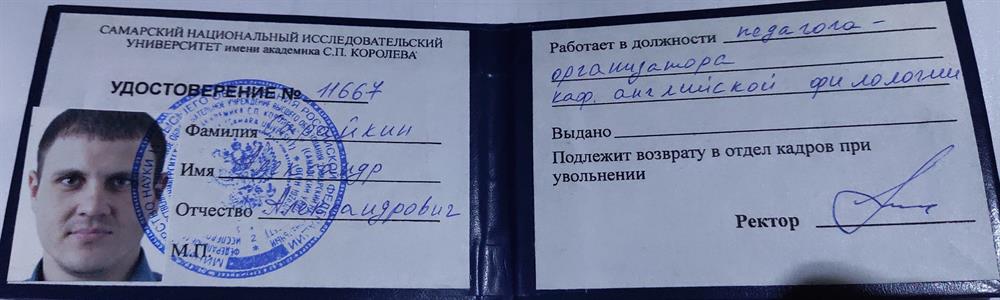 САМАРСКИЙ НАЦИОНАЛЬНЫЙ ИССЛЕДОВАТЕЛЬСКИЙ
УНИВЕРСИТЕТ имени академика С.П. КОРОЛЕВА
УДОСТОВЕРЕНИЕ № 11667
Фамилия
Имя
Отчество Александрович
М.П.
Работает в должности педагога-
организатора
каф. английской филологии
Выдано
Подлежит возврату в отдел кадров при
увольнении
Ректор